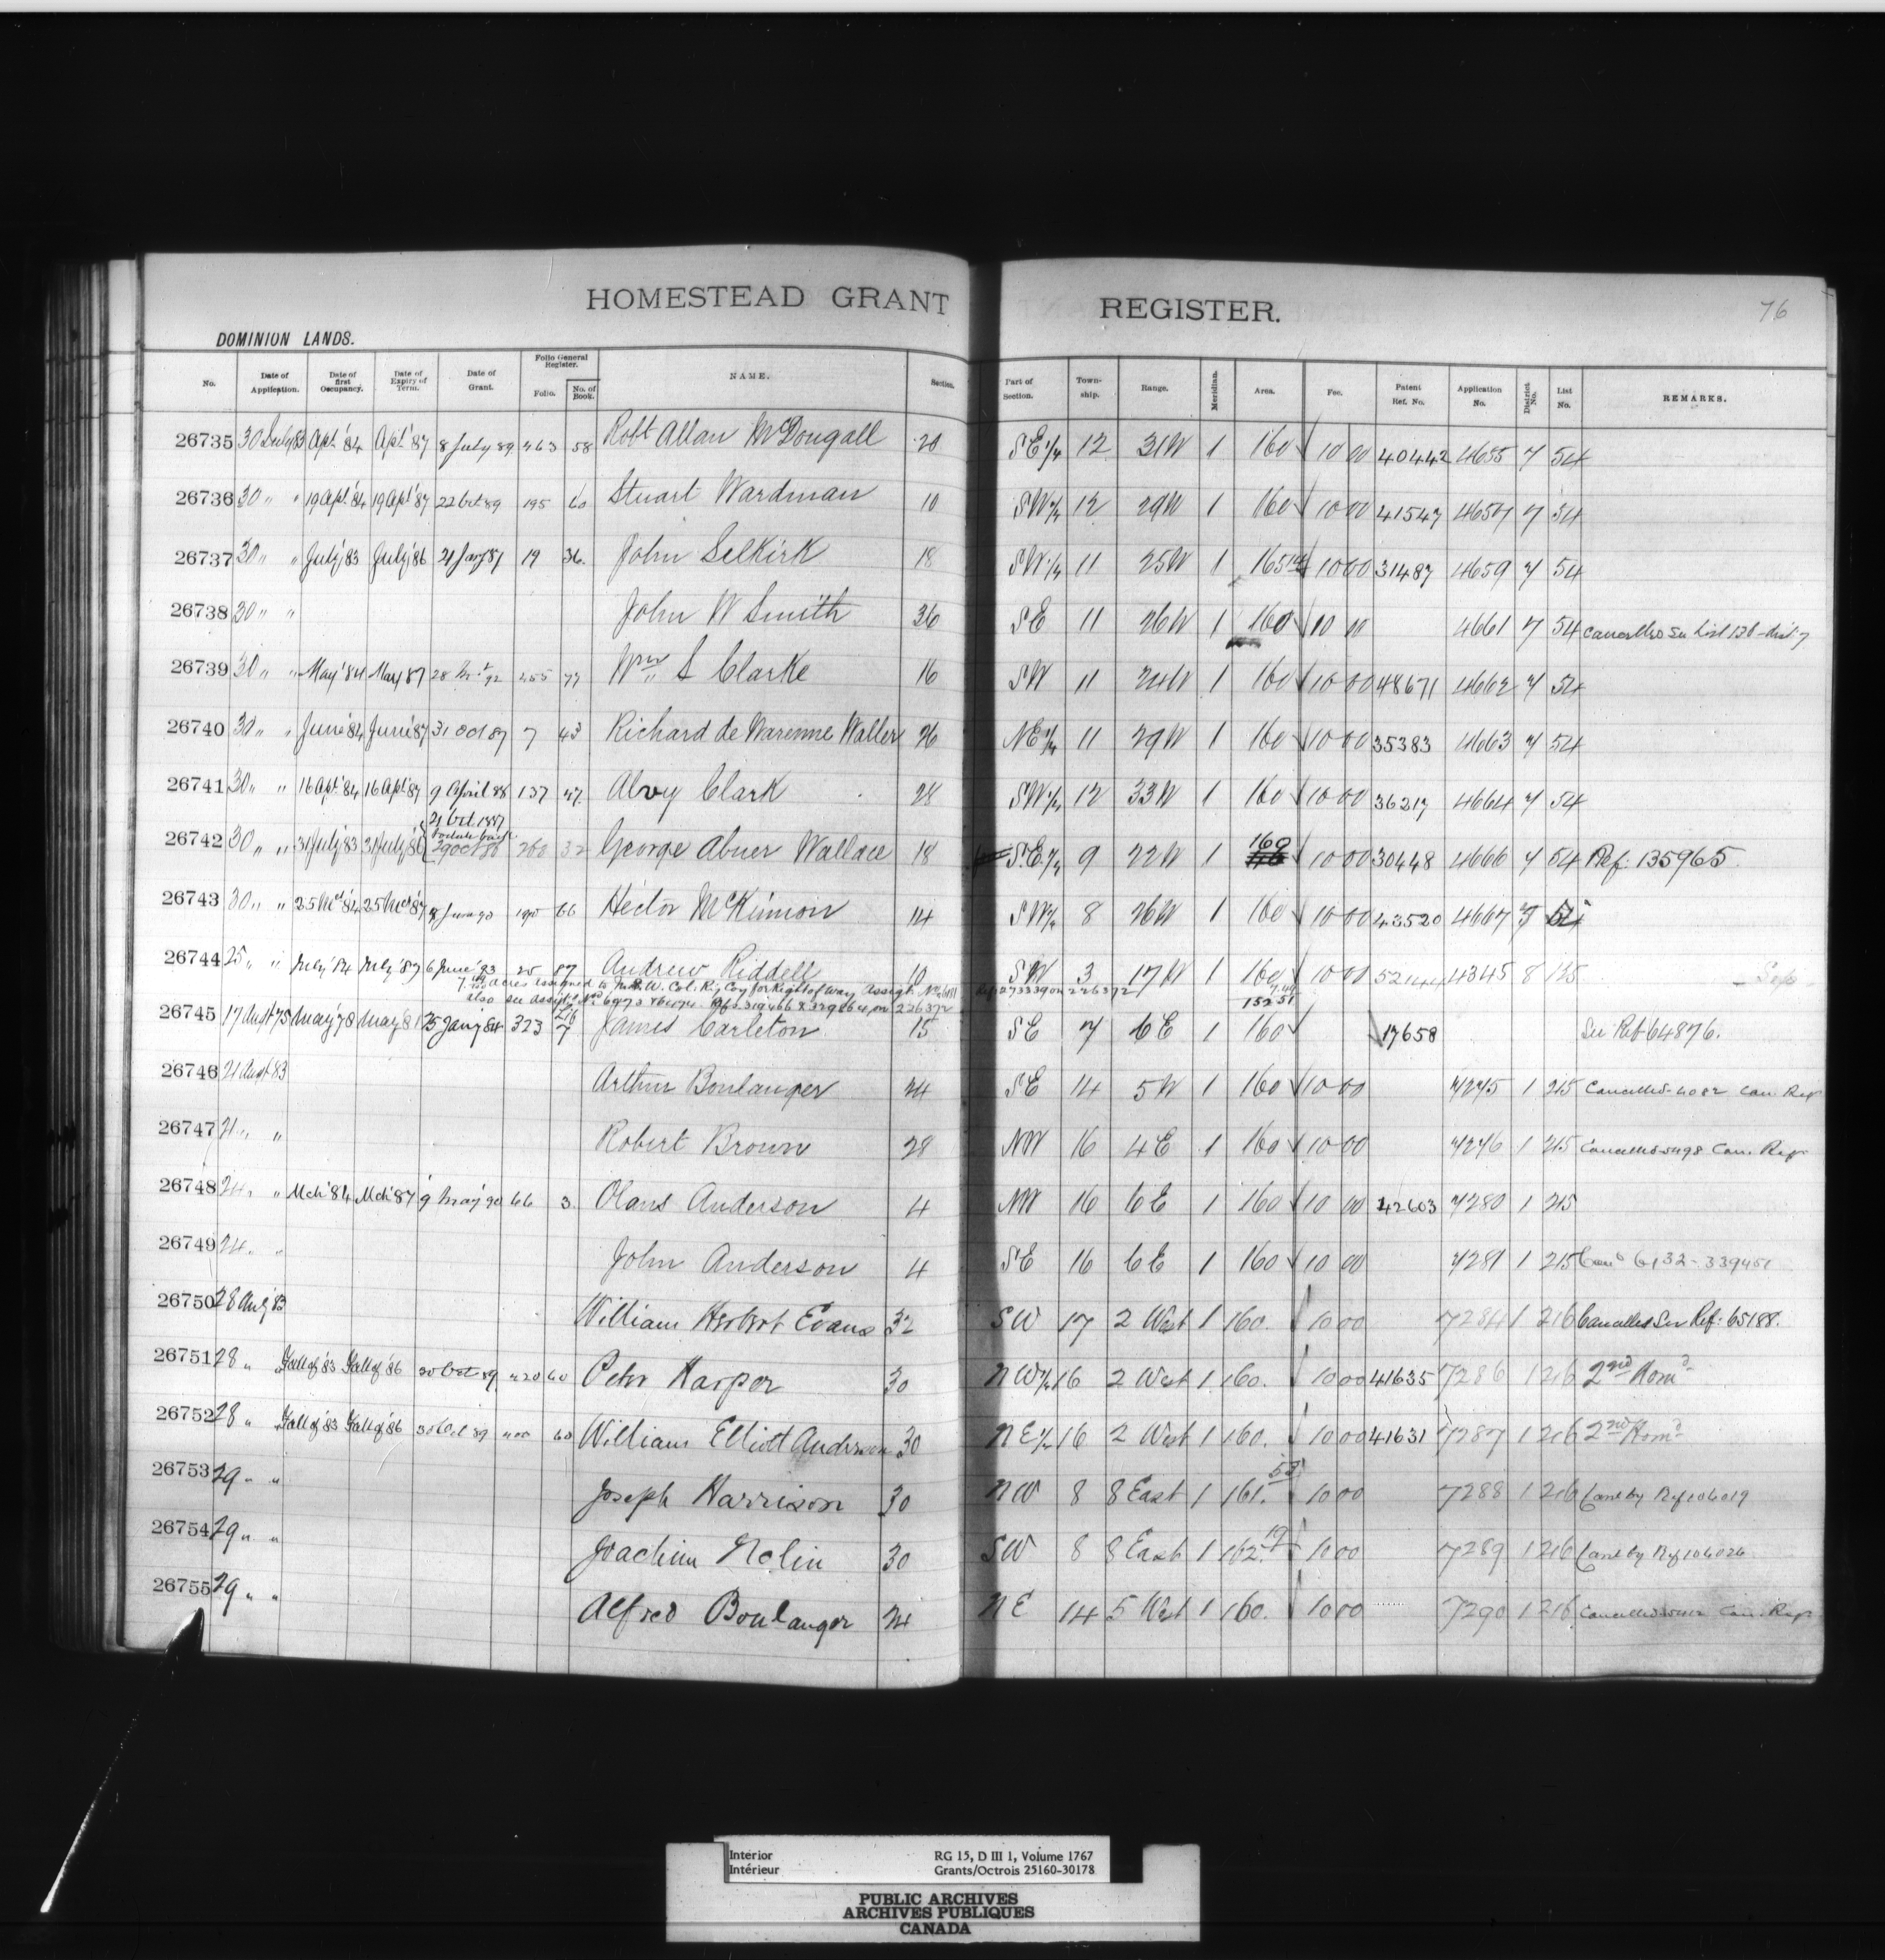 HOMESTEAD GRANT REGISTER.
76
DOMINION LANDS.
No. Date of Application. Date of first Occupancy. Date of Expiry of Term. Date of Grant. Folio General Register. Folio. No. of Book. NAME. Section. Part of Section. Town-ship. Range. Meridian. Area. Fee. Patent Ref. No. Application No. District No. List No. REMARKS.
26735 30 July 83 Apl '84 Apl '87 8 July 89 463 58 Robt Allan McDougall 20 SE 1/4 12 31W 1 160 10 00 40442 4655 7 54
26736 30 " " 19 Apl '84 19 Apl '87 22 Oct 89 195 60 Stuart Wardman 10 SW 1/4 12 29W 1 160 10 00 41547 4657 7 54
26737 30 " " July '83 July '86 21 Jany 87 19 36 John Selkirk 18 SW 1/4 11 25W 1 165 10 00 31487 4659 7 54
26738 30 " " John W Smith 36 SE 11 26W 1 160 10 00 4661 7 54 Cancelled See List 136 - dist. 7
26739 30 " " May '84 May '87 28 92 455 77 Wm S Clarke 16 SW 11 24W 1 160 10 00 48671 4662 7 54
26740 30 " " June '84 June '87 31 Oct 87 7 43 Richard de Warenne Waller 26 NE 1/4 11 29W 1 160 10 00 35383 4663 7 54
26741 30 " " 16 Apl '84 16 Apl '87 9 April 88 137 47 Alvey Clark 28 SW 1/4 12 33W 1 160 10 00 36217 4664 7 54
21 Oct 1887
26742 30 " " 31 July '83 31 July '86 29 Oct 86 260 32 George Abner Wallace 18 SE 1/4 9 22W 1 160 10 00 30448 4666 7 54 Ref: 135965
26743 30 " " 25 Mch '84 25 Mch '87 8 June 90 190 66 Hector McKinnon 14 SW 1/4 8 26W 1 160 10 00 43520 4667 7 54
26744 25 " " July '84 July '87 6 June '93 25 87 Andrew Riddell 10 SW 3 17W 1 160 10 00 4345 8 135
acres assigned to N.W. Col. Ry Coy for Right of Way Assigt. No.
also see Assigt. No. 226372 152 51
26745 17 Augt 75 May '78 May 81 25 Jany 84 323 Lib 7 James Carleton 15 SE 7 6E 1 160 17658 See Ref 64876.
26746 21 Augt 83 Arthur Boulanger 24 SE 14 5W 1 160 10 00 7275 1 215 Cancelled - 4082 Can. Regr
26747 21 " " Robert Brown 28 NW 16 4E 1 160 10 00 7276 1 215 Cancelled 5498 Can. Regr
26748 24 " " Mch '84 Mch '87 9 May '90 66 3 Olans Anderson 4 NW 16 6E 1 160 10 00 42603 7280 1 215
26749 24 " " John Anderson 4 SE 16 6E 1 160 10 00 7281 1 215 Cand 6132 - 339451
26750 28 Aug '83 William Herbert Evans 32 SW 17 2 West 1 160. 10 00 7284 1 216 Cancelled See Ref: 65188.
26751 28 " Fall of '83 Fall of '86 30 Oct 89 420 60 Peter Harper 30 NW 1/4 16 2 West 1 160. 10 00 41635 7286 1 216 2nd Homd
26752 28 " Fall of '83 Fall of '86 30 Oct 89 60 William Elliott Anderson 30 NE 1/4 16 2 West 1 160. 10 00 41631 7287 1 216 2nd Homd
26753 29 " " Joseph Harrison 30 NW 8 8 East 1 161.53 10 00 7288 1 216 Canc by Ref 106019
26754 29 " " Joachim Nolin 30 SW 8 8 East 1 162.19 10 00 7289 1 216 Canc by Ref 106026
26755 29 " " Alfred Boulanger 24 NE 14 5 West 1 160. 10 00 7290 1 216 Cancelled Can. Regr
Interior RG 15, D III 1, Volume 1767
Intérieur Grants/Octrois 25160-30178
PUBLIC ARCHIVES
ARCHIVES PUBLIQUES
CANADA